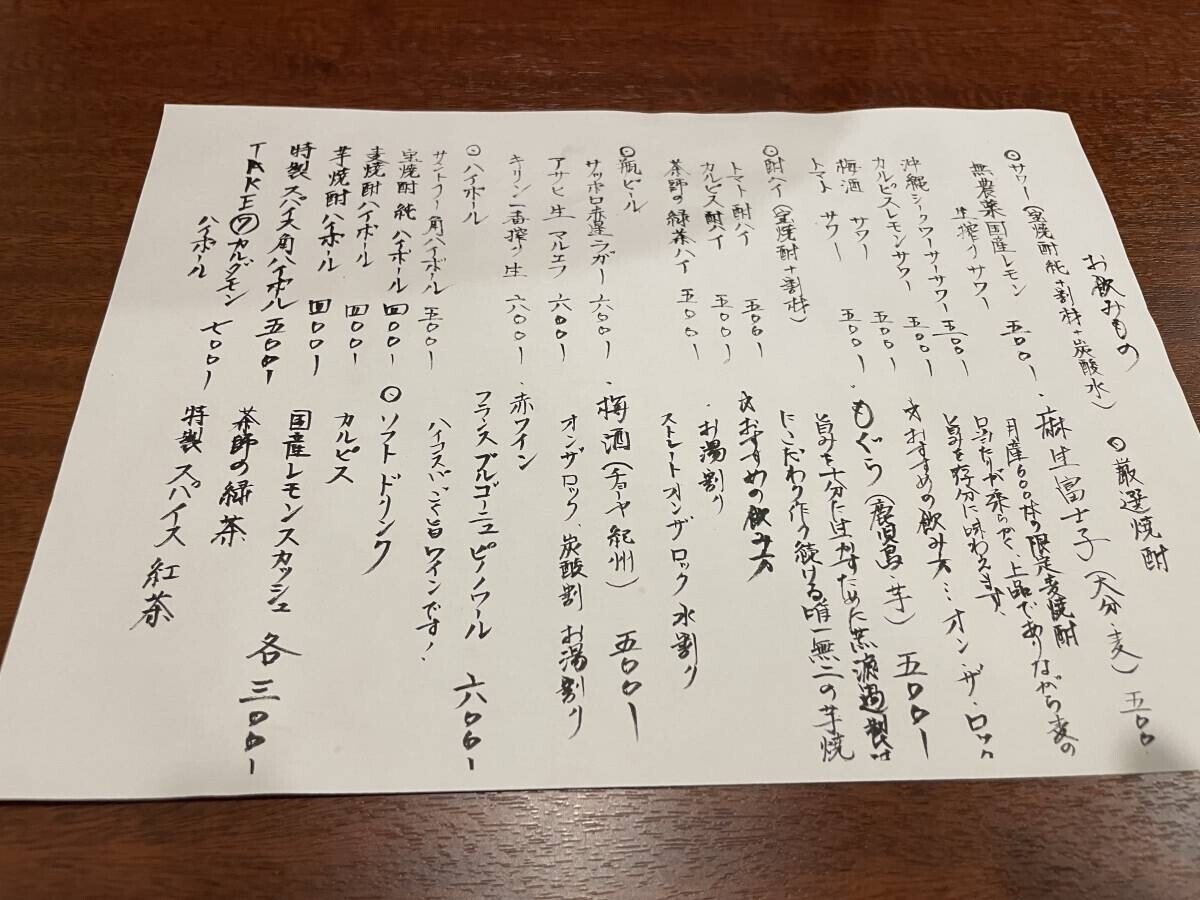 お飲みもの
⦿サワー(宝焼酎純+割材+炭酸水)
無農薬国産レモン
生搾りサワー 五〇〇ー
沖縄シークワーサーサワー 五〇〇ー
カルピスレモンサワー 五〇〇ー
梅酒 サワー 五〇〇ー
トマト サワー 五〇〇ー
⦿酎ハイ(宝焼酎+割材)
トマト酎ハイ 五〇〇ー
カルピス酎ハイ 五〇〇ー
茶師の緑茶ハイ 五〇〇ー
⦿瓶ビール
サッポロ赤星ラガー 六〇〇ー
アサヒ生 マルエフ 六〇〇ー
キリン一番搾り生 六〇〇ー
⦿ハイボール
サントリー角ハイボール 五〇〇ー
宝焼酎純ハイボール 四〇〇ー
麦焼酎ハイボール 四〇〇ー
芋焼酎ハイボール 四〇〇ー
特製スパイス角ハイボール 五〇〇ー
TAKEⓌカルダモン
ハイボール 七〇〇ー
⦿厳選焼酎
・麻生富士子(大分・麦) 五〇〇
月産600本の限定麦焼酎
口あたりが柔らかく、上品でありながら麦の
旨みを存分に味わえます。
☆おすすめの飲み方…オン・ザ・ロック
・もぐら(鹿児島・芋) 五〇〇ー
旨みを十分に生かすために荒濾過製法
にこだわり作り続ける唯一無二の芋焼
☆おすすめの飲み方
・お湯割り
ストレートオンザロック水割り
・梅酒(チョーヤ紀州) 五〇〇ー
オンザロック、炭酸割 お湯割り
・赤ワイン
フランスブルゴーニュピノノワール 六〇〇ー
ハイコスパごく旨ワインです!
⦿ソフトドリンク
カルピス
国産レモンスカッシュ 各三〇〇ー
茶師の緑茶
特製スパイス紅茶